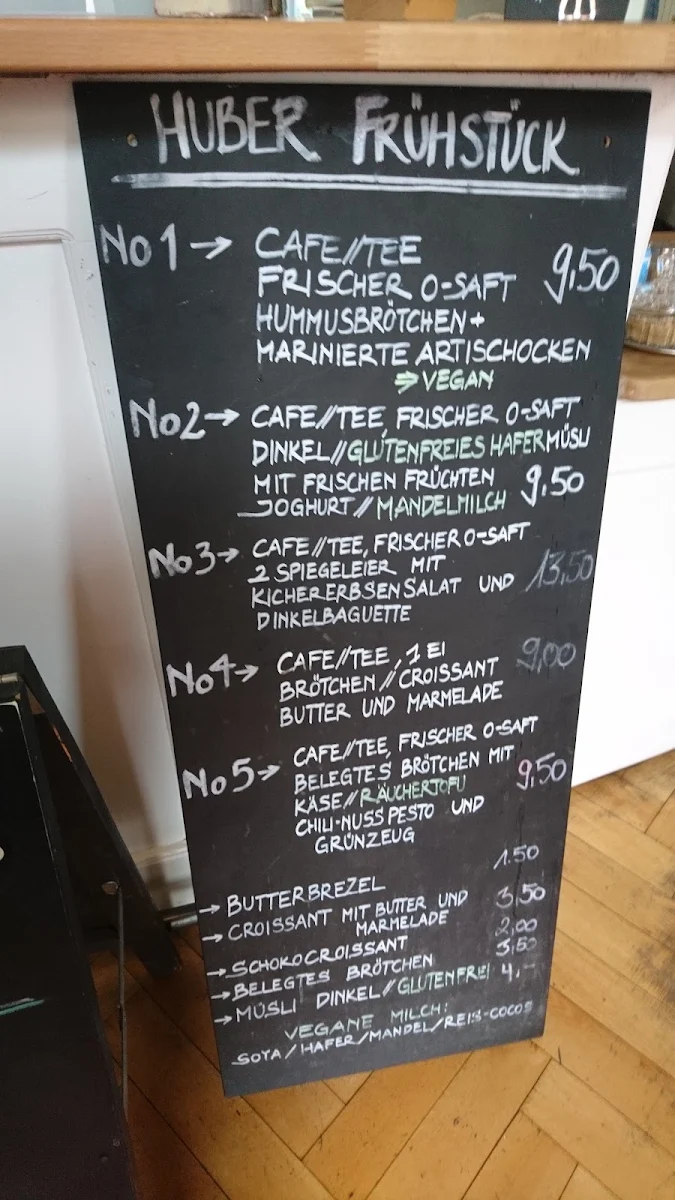 HUBER FRÜHSTÜCK
No 1 → CAFE//TEE
FRISCHER O-SAFT 9,50
HUMMUSBRÖTCHEN +
MARINIERTE ARTISCHOCKEN
⇒ VEGAN
No 2 → CAFE//TEE, FRISCHER O-SAFT
DINKEL//GLUTENFREIES HAFERMÜSLI
MIT FRISCHEN FRÜCHTEN 9,50
JOGHURT // MANDELMILCH
No 3 → CAFE//TEE, FRISCHER O-SAFT
2 SPIEGELEIER MIT 13,50
KICHERERBSENSALAT UND
DINKELBAGUETTE
No 4 → CAFE//TEE, 1 EI 9,00
BRÖTCHEN // CROISSANT
BUTTER UND MARMELADE
No 5 → CAFE//TEE, FRISCHER O-SAFT
BELEGTES BRÖTCHEN MIT 9,50
KÄSE//RÄUCHERTOFU
CHILI-NUSSPESTO UND
GRÜNZEUG
→ BUTTERBREZEL 1.50
→ CROISSANT MIT BUTTER UND 3,50
MARMELADE
→ SCHOKOCROISSANT 2,00
→ BELEGTES BRÖTCHEN 3,50
→ MÜSLI DINKEL//GLUTENFREI 4,-
VEGANE MILCH:
SOYA/HAFER/MANDEL/REIS-COCOS